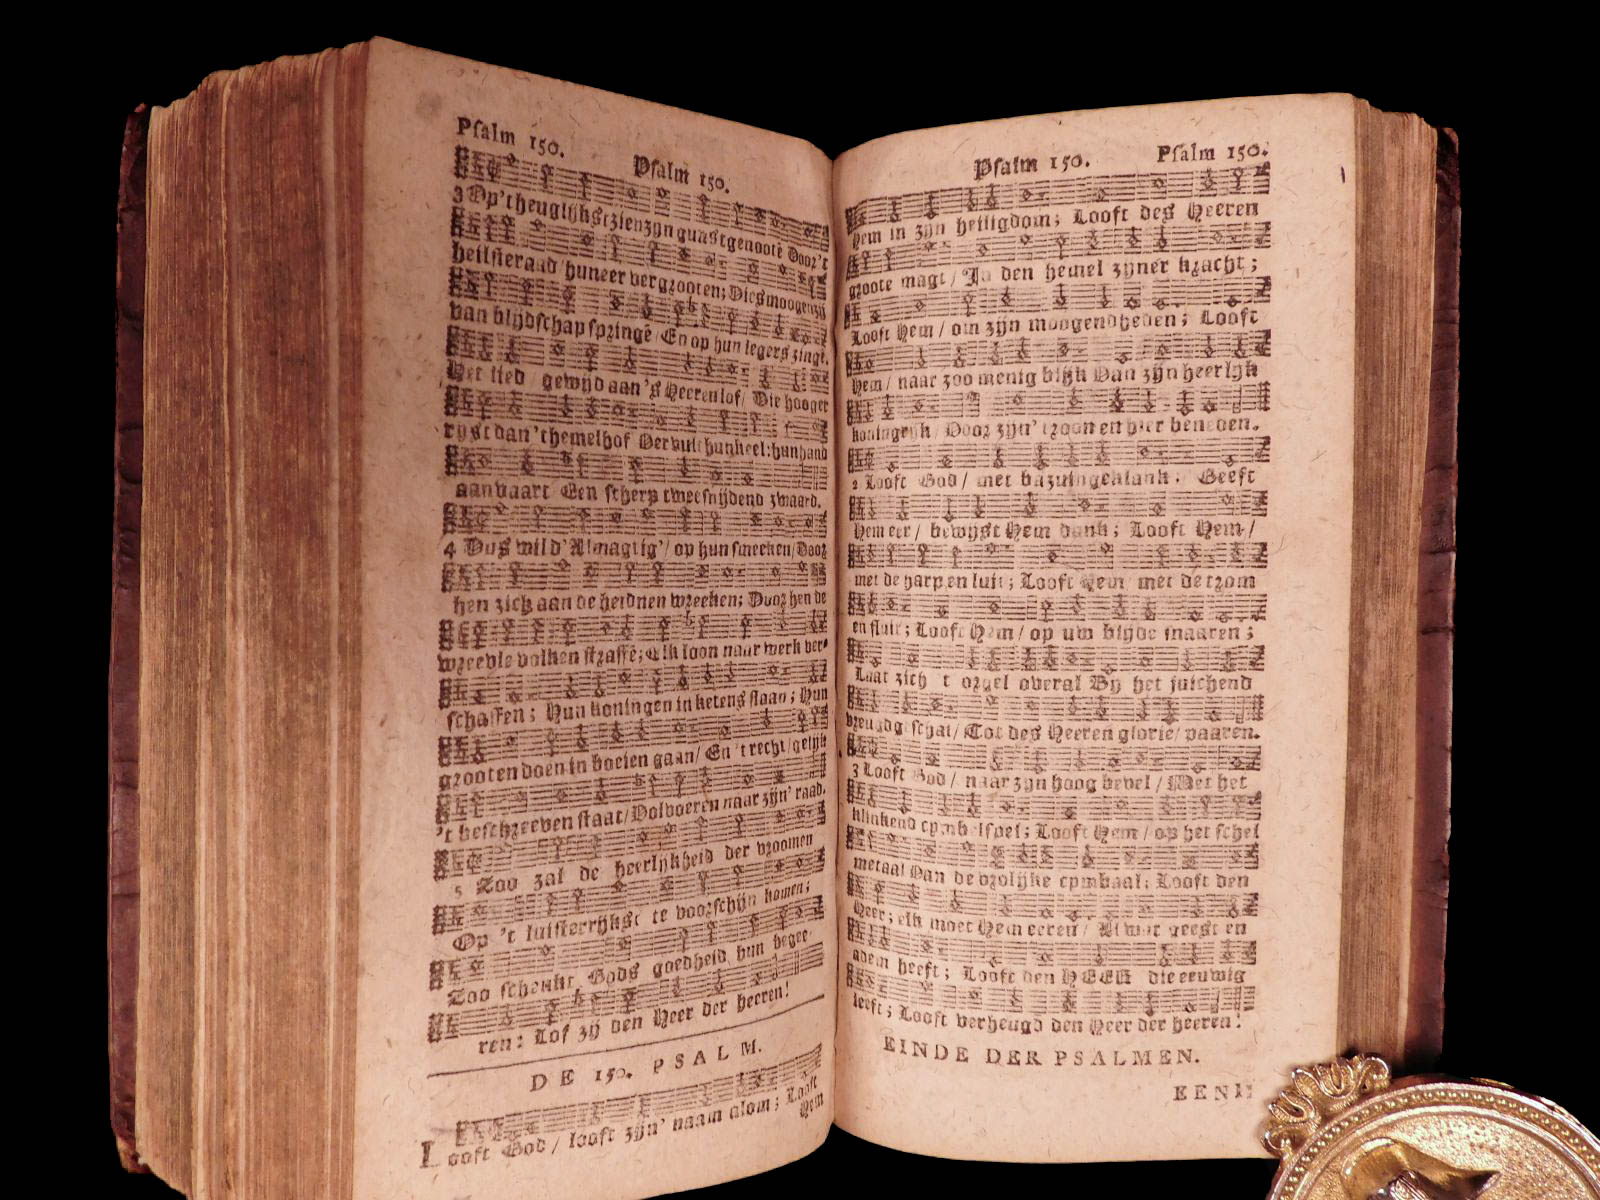 Psalm 150. Psalm 150.
3 Op 't heuglijkst zien zyn gunstgenootē Door 't
heilsieraad / hun eer vergrooten; Dies moogen zij
van blijdschap springē / En op hun legers zingē.
Het lied / gewijd aan 's Heeren lof / Die hooger
ryst dan 't hemelhof Vervult hun keel; hun hand
aanvaart Een scherp tweesnijdend zwaard.
4 Dus wild' Almagtig' / op hun smeeken / Door
hen zich aan de heidnen wreeken; Door hen de
wreevle volken straffē; Elk loon naar werk ver-
schaffen; Hun koningen in ketens slaan; Hun
grooten doen in boeien gaan / En 't recht / gelijk
't beschreeven staat / Volvoeren naar zijn' raad.
5 Zoo zal de heerlijkheid der vroomen
Op 't luisterrijkst te voorschijn komen;
Zoo schenkt Gods goedheid hun begee-
ren: Lof zij den Heer der heeren!
DE 150. PSALM.
Looft God / looft zijn' naam alom; Looft
Hem
Psalm 150. Psalm 150.
Hem in zijn heiligdom; Looft des Heeren
groote magt / In den hemel zijner kracht;
Looft Hem / om zijn moogendheden; Looft
Hem / naar zoo menig blijk Van zijn heerlijk
koningrijk / Voor zijn' troon en hier beneden.
2 Looft God / met bazuingeklank; Geeft
Hem eer / bewijst Hem dank; Looft Hem /
met de harp en luit; Looft Hem / met de trom
en fluit; Looft Hem / op uw blijde snaaren;
Laat zich 't orgel overal By het juichend
vreugdgeschal / Tot des Heeren glorie / paaren.
3 Looft God / naar zijn hoog bevel / Met het
klinkend cymbelspel; Looft Hem / op het schel
metaal Van de vrolijke cymbaal; Looft den
Heer; elk moet Hem eeren / Al wat geest en
adem heeft; Looft den HEER die eeuwig
leeft; Looft verheugd den Heer der heeren!
EINDE DER PSALMEN.